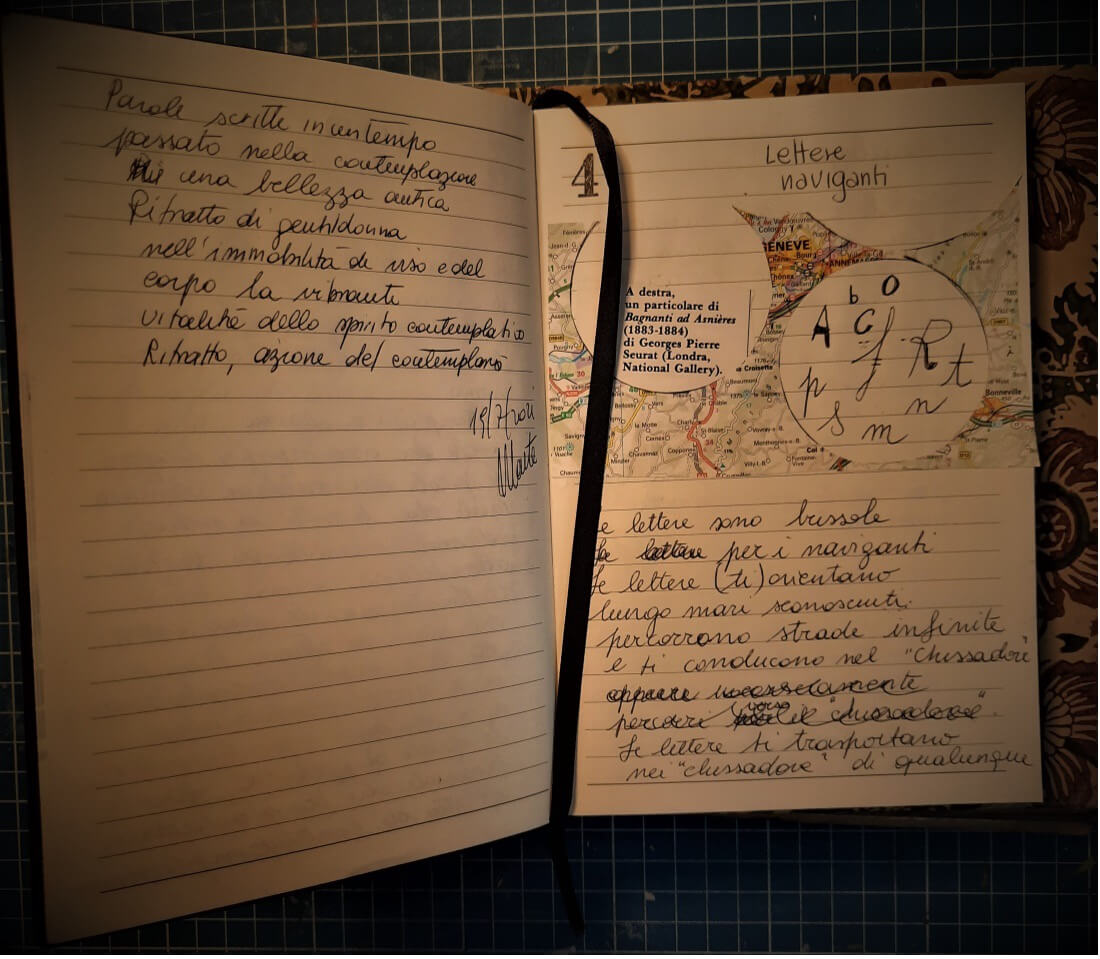 Parole scritte in un tempo
passato nella contemplazione
una bellezza antica
Ritratto di gentildonna
nell'immobilità di viso e del
corpo la vibrante
vitalità dello spirito contemplativo
Ritratto, azione del contemplarsi
19/7/
4
Lettere
naviganti
GENÈVE
ANNEMA
A destra,
un particolare di
Bagnanti ad Asnières
(1883-1884)
di Georges Pierre
Seurat (Londra,
National Gallery).
b O
A C f R t
p s m n
Bonneville
e lettere sono bussole
per i naviganti
Le lettere (ti) orientano
lungo mari sconosciuti.
percorrono strade infinite
e ti conducono nel "chissadove"
oppure
percorri verso il "chissadove".
Le lettere ti trasportano
nei "chissadove" di qualunque